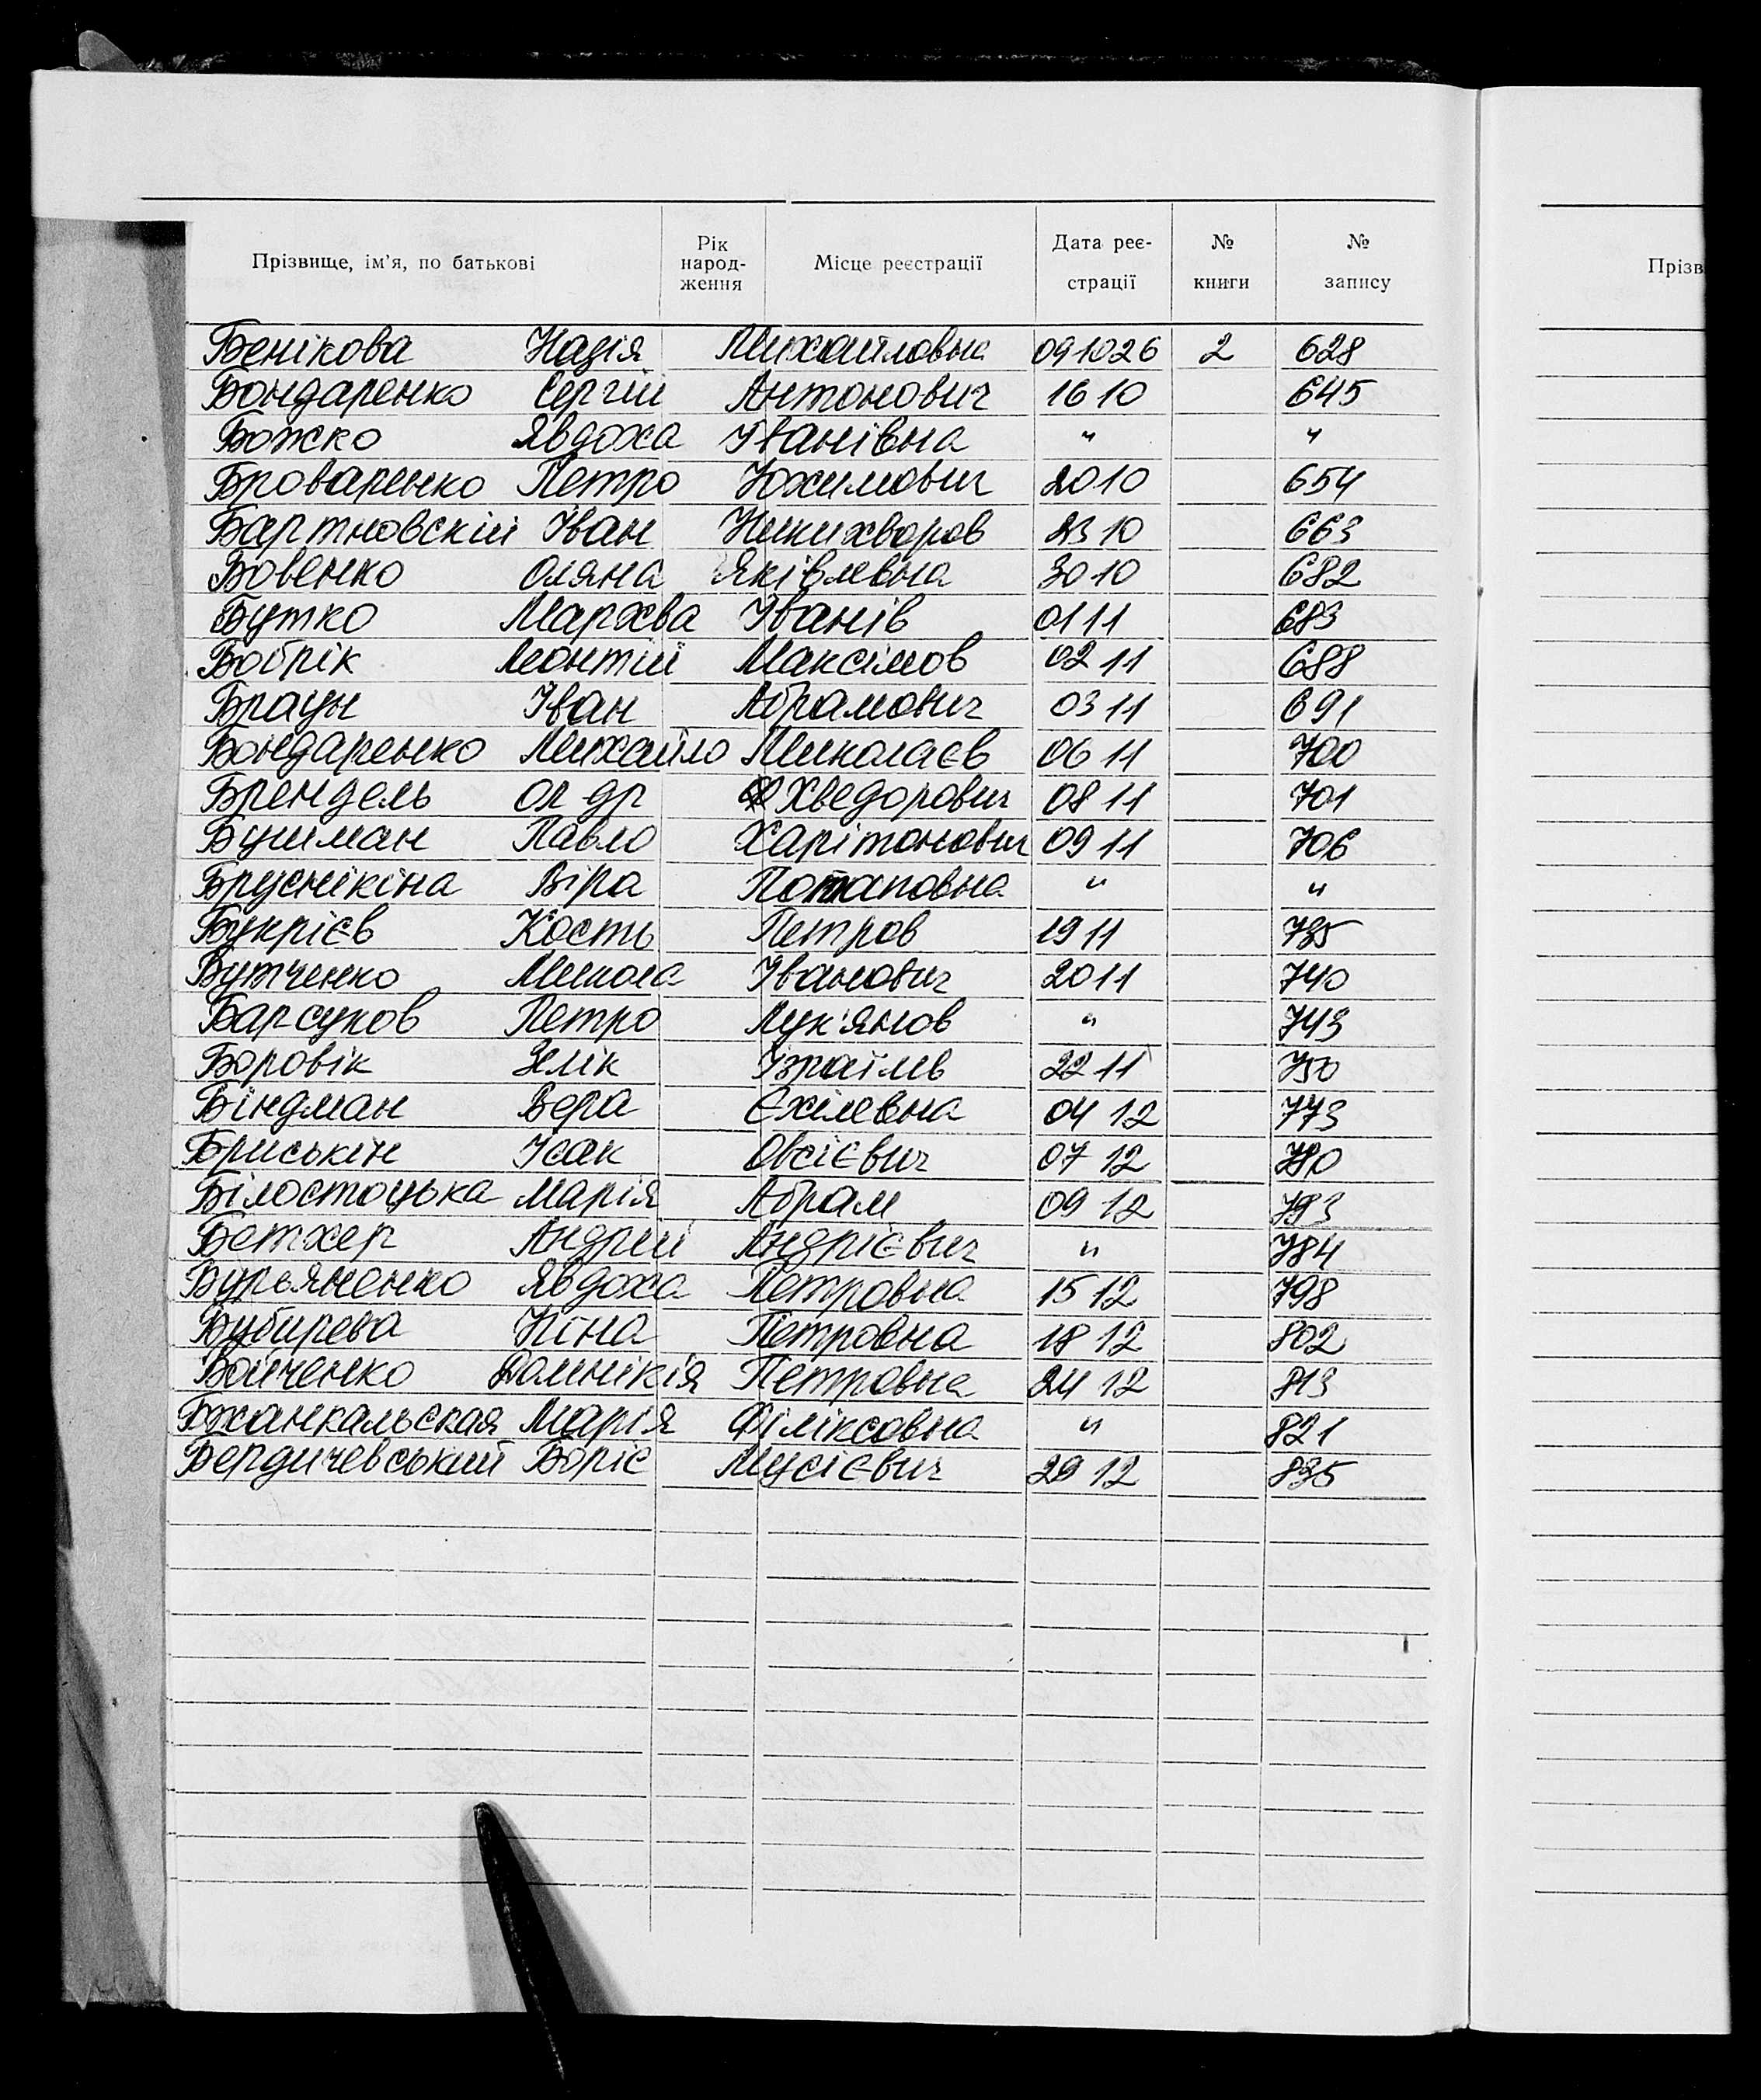 Прізвище, ім'я, по батькові Рік народ- ження Місце реєстрації Дата реє- страції № книги № запису Прізв
Бенікова Надія Михайловна 091026 2 628
Бондаренко Сергій Антонович 16 10 645
Божко Явдоха Іванівна " "
Броваренко Петро Юхимович 20 10 654
Бартновскій Іван Никихворов 23 10 663
Бовенко Оляна Яківлевна 30 10 682
Бутко Мархва Іванів 01 11 683
Бобрік Леонтій Максімов 02 11 688
Браун Іван Абрамович 03 11 691
Бондаренко Михайло Миколаєв 06 11 700
Брендель Ол др Хведорович 08 11 701
Бушман Павло Харітонович 09 11 706
Бруснікіна Віра Потаповна " "
Букрієв Кость Петров 19 11 735
Бутченко Микола Іванович 20 11 740
Барсуков Петро Лук'янов " 743
Боровік Зелік Ізраїлев 22 11 750
Біндман Вера Єхілевна 04 12 773
Бриськін Ісак Овсієвич 07 12 780
Білостоцька Марія Абрам 09 12 793
Бетхер Андрий Андрієвич " 784
Бурьяненко Явдоха Петровна 15 12 798
Бубирева Ніна Петровна 18 12 802
Бойченко Домнікія Петровна 24 12 813
Бжанкальская Марія Філіксовна " 821
Бердичевський Боріс Мусієвич 29 12 835